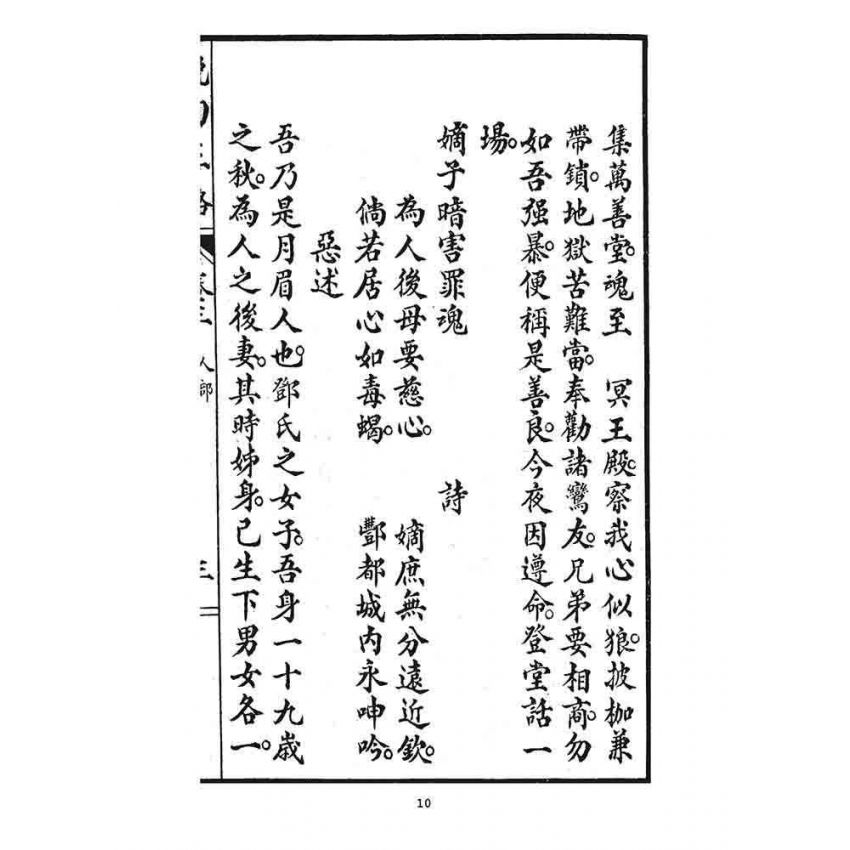 集萬善堂。魂至　冥王殿。察我心似狼。披枷兼
帶鎖。地獄苦難當。奉勸諸鸞友。兄弟要相商。勿
如吾强暴。便稱是善良。今夜因遵命。登堂話一
場。
嫡子暗害罪魂　詩
為人後母要慈心。　嫡庶無分遠近欽。
倘若居心如毒蝎。　酆都城内永呻吟。
惡述
吾乃是月眉人也。鄧氏之女子。吾身一十九歲
之秋。為人之後妻。其時姊身。已生下男女各一。
卷三　人部　三
10